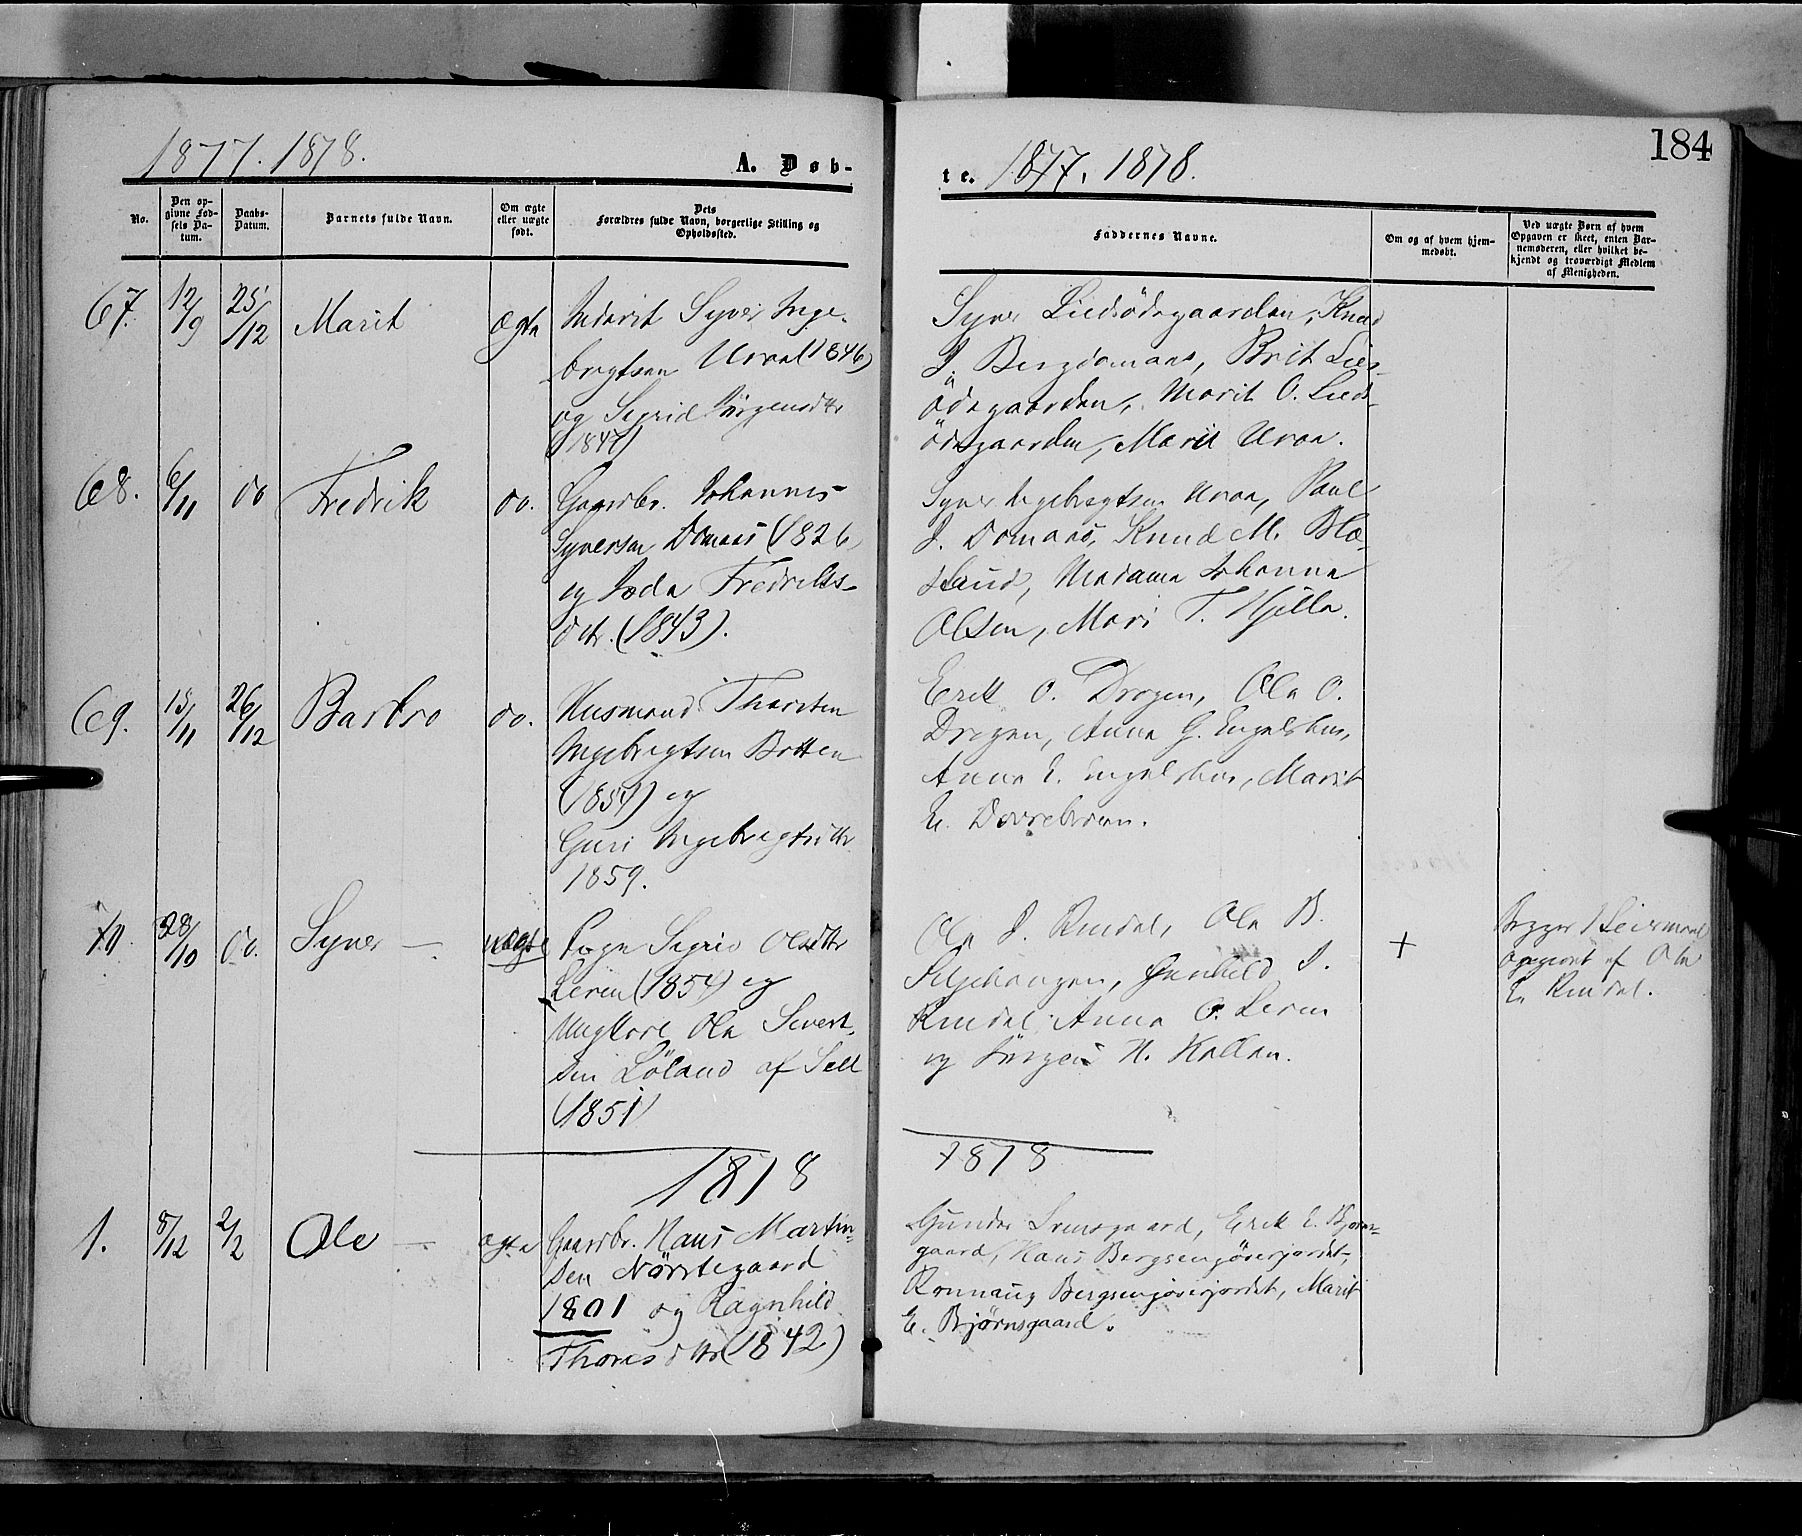 1877. 1878.
A. Døb-
te. 1877. 1878.
184
No.
Den op-
givne Fød-
sels Da-
tum.
Daabs-
Datum.
Barnets fulde Navn.
Om ægte
eller uægte
født.
Dets
Forældres fulde Navn, borgerlige Stilling og
Opholdssted.
Faddernes Navne.
Om og af hvem hjem-
medøbt.
Ved uægte Børn af hvem
Opgaven er skeet, enten Bar-
nemoderen, eller hvilket be-
kjendt og troværdigt Medlem
af Menigheden.
67. 12/9 25/12 Marit ægte Inderst Syver Inge-
brigtsen Uraa (1846)
og Sigrid Jörgensdtr
(1847)
Syver Liedsödegaarden, Knud
J. Bergdomaas, Brit Lies-
ödegaarden, Marit O. Lieds-
ödegaarden, Marit Uraa.
68. 6/11 do Fredrik do. Gaardbr. Johannes
Syversen Domaas (1826)
og Fredriks-
dtr. (1843).
Syver Ingebrigtsen Uraa, Paul
J. Domaas, Knud M. Blæ-
stuud, Madame Johanna
Olsen, Mari T. Hjelle.
69. 15/11 26/12 Barbro do. Husmand Thorsten
Ingebrigtsen Botten
(1854) og
Guri Ingebrigtsdtr
1859.
Erik O. Drogen, Ole O.
Drogen, Anna G. Engelshus,
Anna E. Engelshus, Marit
E. Dovrebroen.
70. 28/10 do. Syver — uægte Pige Sigrid Olsdtr
Leren (1854) og
Ungkarl Ole Sivert-
sen Löland af Sell
(1851)
Ole J. Rindal, Ole B.
Seljehaugen, Gunhild J.
Rindal, Anna O. Leren
og Jörgen H. Kollan.
+
Begges Leiermaal
opgivet af Ole
E. Rindal.
1878
1878
1. 8/12 2/2 Ole — ægte Gaardbr. Hans Martin-
sen Nörstegaard
1801 og Ragnhild
Thoresdtr (1842)
Gunder Erik E. Bjørns-
gaard, Hans Bergsengjöverjordet,
Ronnaug Bergsengjöverjordet, Marit
E. Bjørnsgaard.